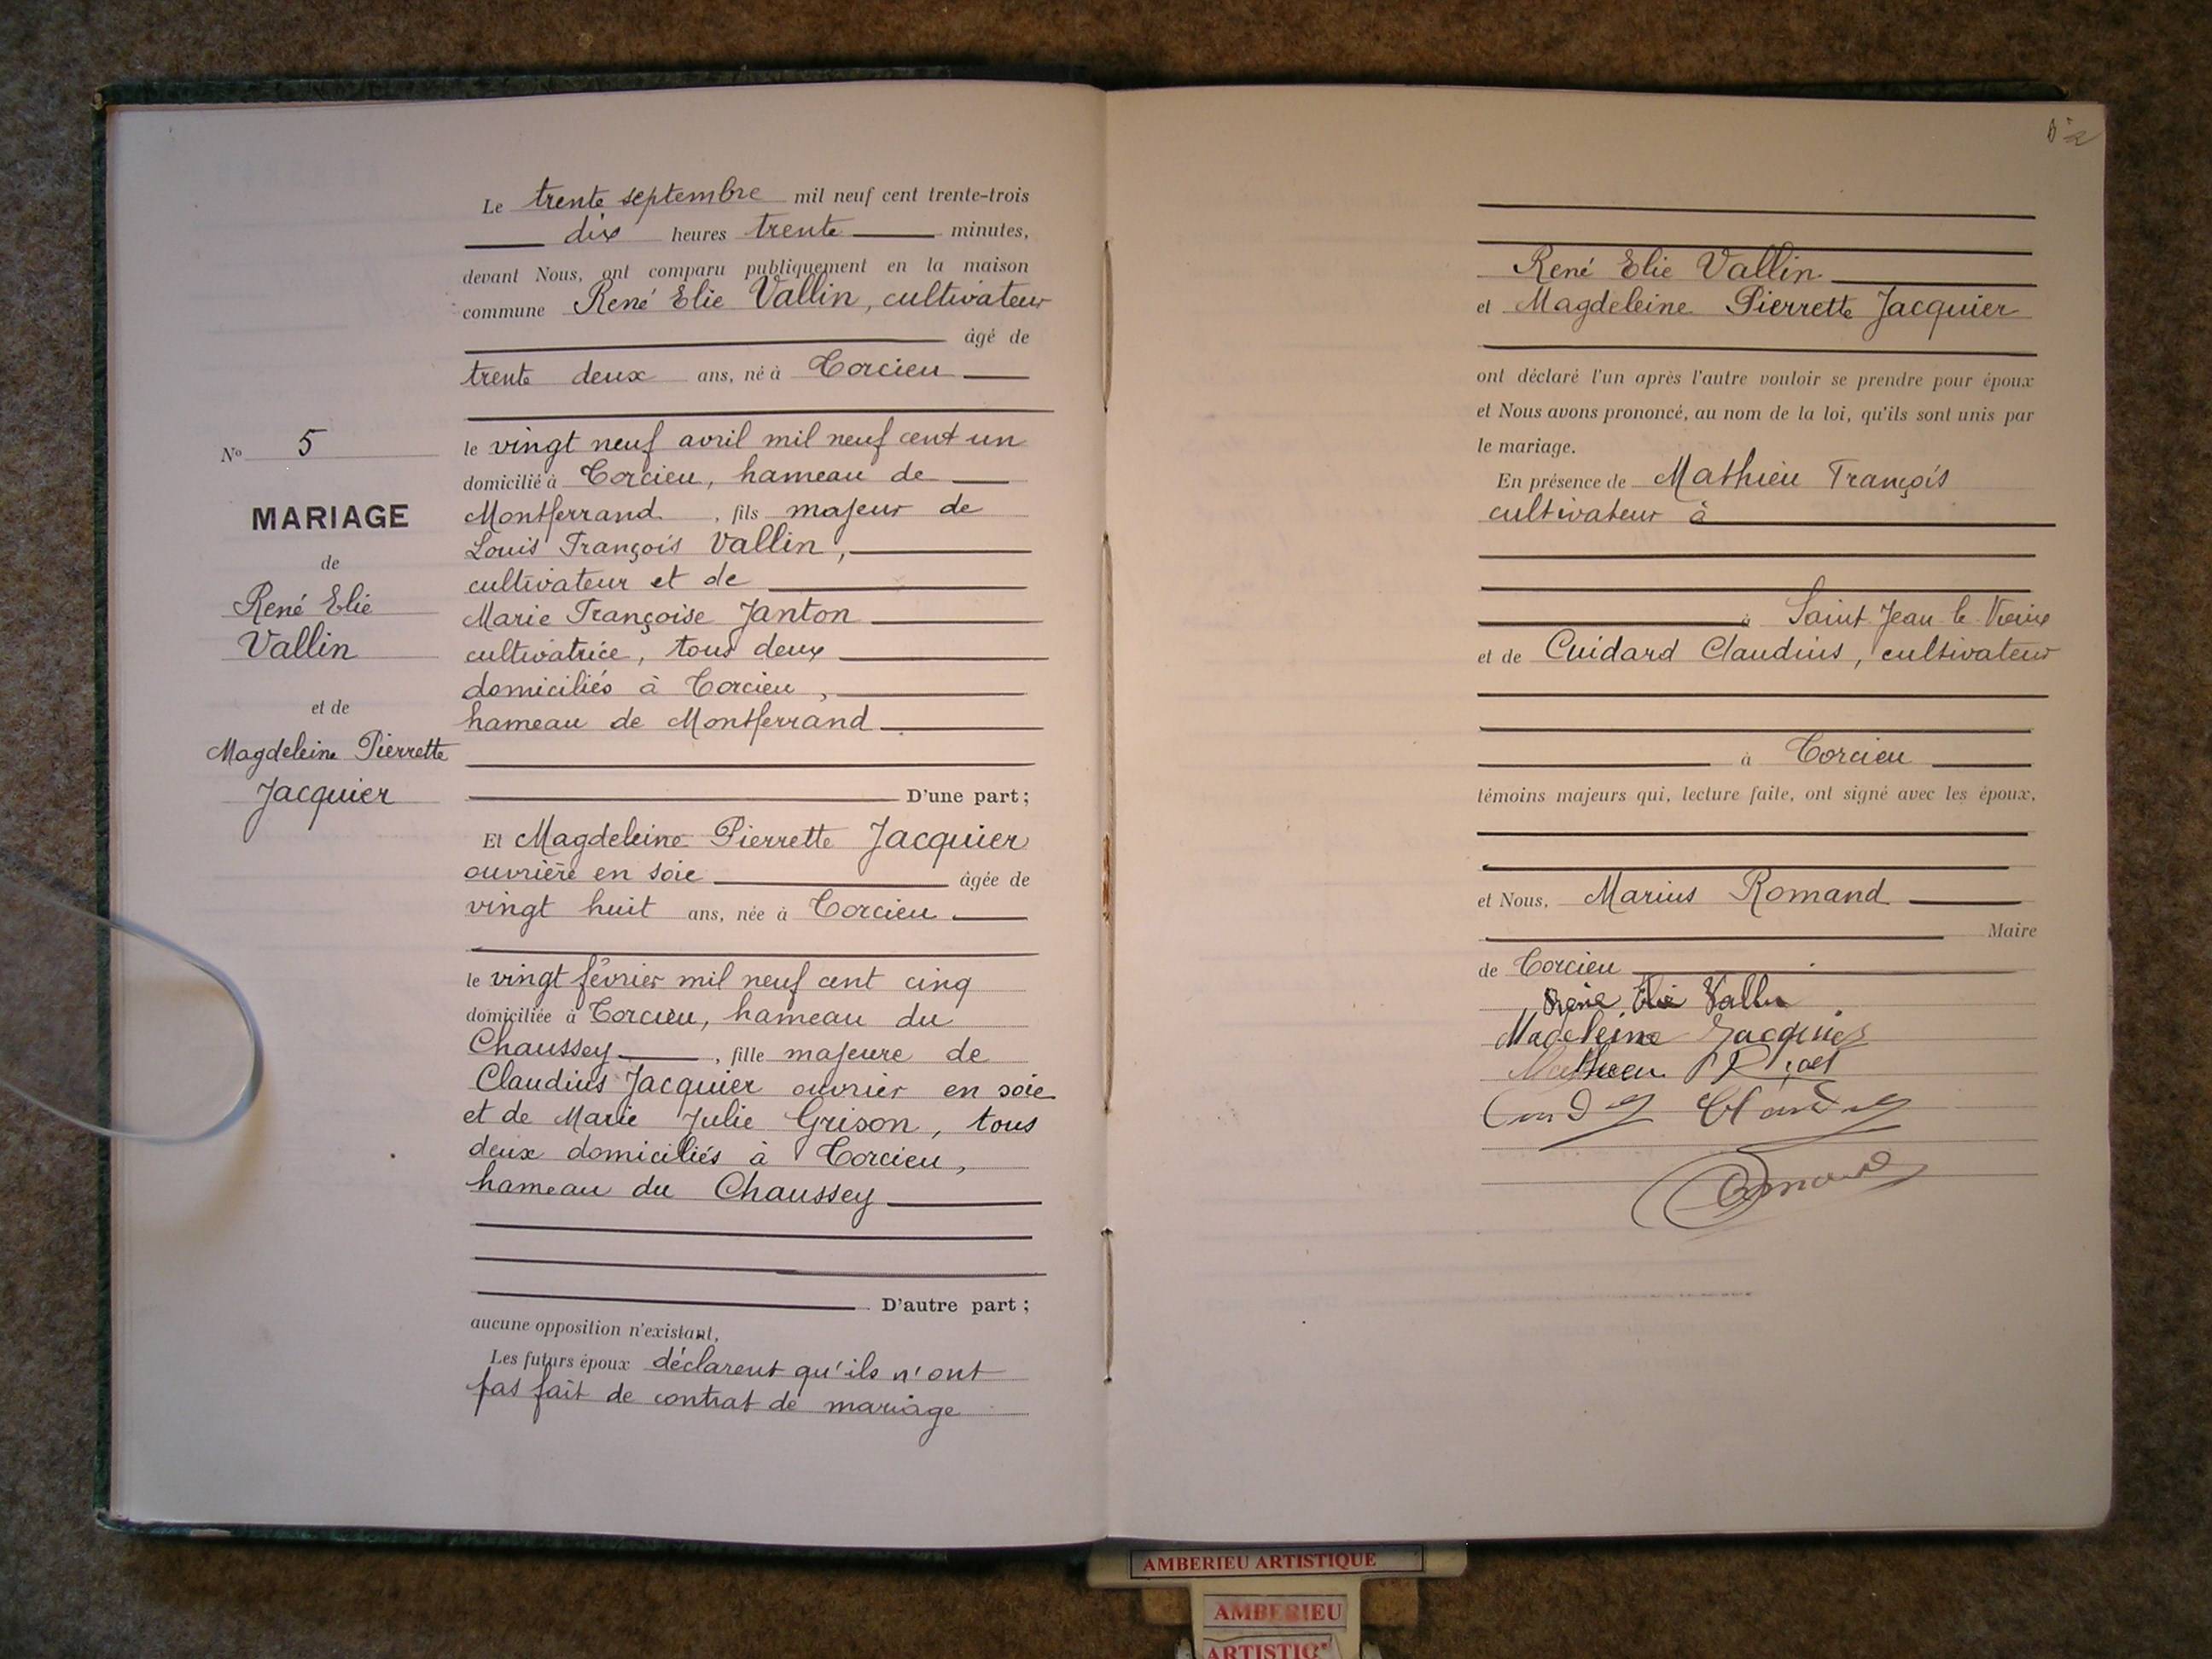 Le trente septembre mil neuf cent trente-trois
dix heures trente minutes,
devant Nous, ont comparu publiquement en la maison
commune René Elie Vallin, cultivateur
âgé de
trente deux ans, né à Torcieu
le vingt neuf avril mil neuf cent un
domicilié à Torcieu, hameau de
Montferrand, fils majeur de
Louis François Vallin,
cultivateur et de
Marie Françoise Janton
cultivatrice, tous deux
domiciliés à Torcieu,
hameau de Montferrand
D'une part;
Et Magdeleine Pierrette Jacquier
ouvrière en soie âgée de
vingt huit ans, née à Torcieu
le vingt février mil neuf cent cinq
domiciliée à Torcieu, hameau du
Chaussey, fille majeure de
Claudius Jacquier ouvrier en soie
et de Marie Julie Grison, tous
deux domiciliés à Torcieu,
hameau du Chaussey
D'autre part;
aucune opposition n'existant,
Les futurs époux déclarent qu'ils n'ont
pas fait de contrat de mariage
No 5
MARIAGE
de
René Elie
Vallin
et de
Magdeleine Pierrette
Jacquier
René Elie Vallin
et Magdeleine Pierrette Jacquier
ont déclaré l'un après l'autre vouloir se prendre pour époux
et Nous avons prononcé, au nom de la loi, qu'ils sont unis par
le mariage.
En présence de Mathieu François
cultivateur à
à Saint Jean le Vieux
et de Cuidard Claudius, cultivateur
à Torcieu
témoins majeurs qui, lecture faite, ont signé avec les époux,
et Nous, Marius Romand
Maire
de Torcieu
René Elie Vallin
Madeleine Jacquier
Mathieu
Romand
AMBERIEU ARTISTIQUE
AMBERIEU
ARTISTIQ